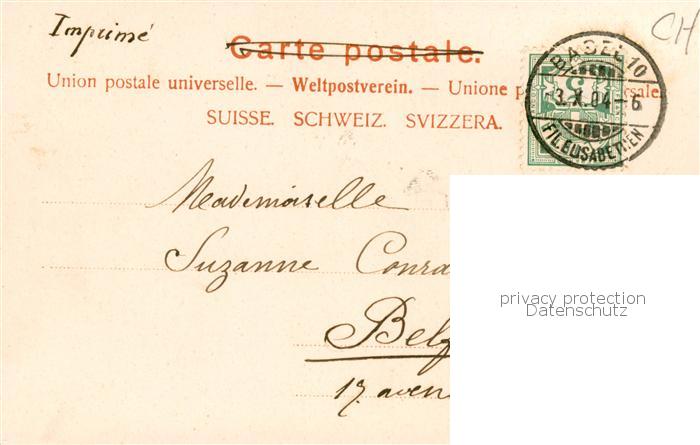 Imprimé
CH
Carte postale.
Union postale universelle. — Weltpostverein. — Unione p sale
SUISSE. SCHWEIZ. SVIZZERA.
BASEL 10
3.X.04-6
FIL.ELISABETHEN
Mademoiselle
Suzanne Conra
Belf
17. aven
privacy protection
Datenschutz